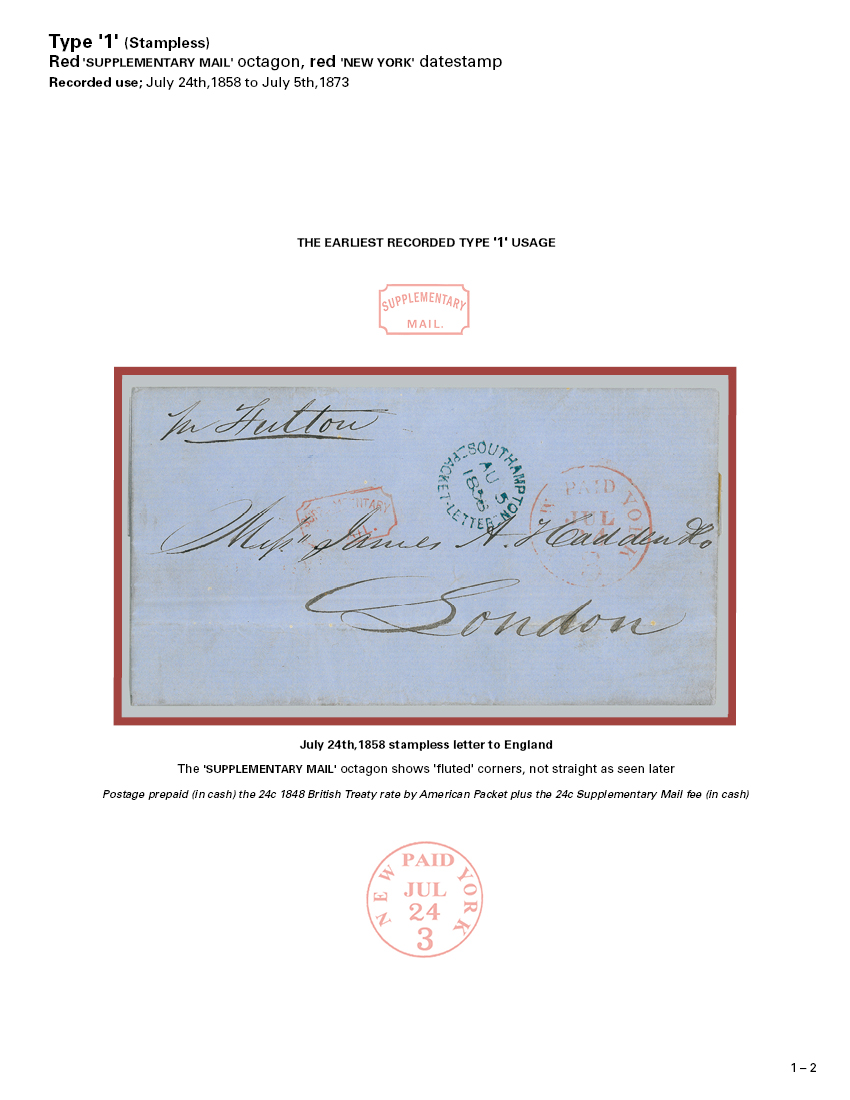 Type '1' (Stampless)
Red 'SUPPLEMENTARY MAIL' octagon, red 'NEW YORK' datestamp
Recorded use; July 24th,1858 to July 5th,1873
THE EARLIEST RECORDED TYPE '1' USAGE
SUPPLEMENTARY
MAIL.
SOUTHAMPTON
PACKET-LETTER
AU 5
1858
PAID
NEW YORK
JUL
James A.
London
July 24th,1858 stampless letter to England
The 'SUPPLEMENTARY MAIL' octagon shows 'fluted' corners, not straight as seen later
Postage prepaid (in cash) the 24c 1848 British Treaty rate by American Packet plus the 24c Supplementary Mail fee (in cash)
PAID
NEW YORK
JUL
24
3
1 – 2